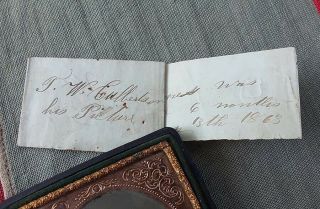 T. W. Culbertson was
his Picture. 6 months
13th 1863